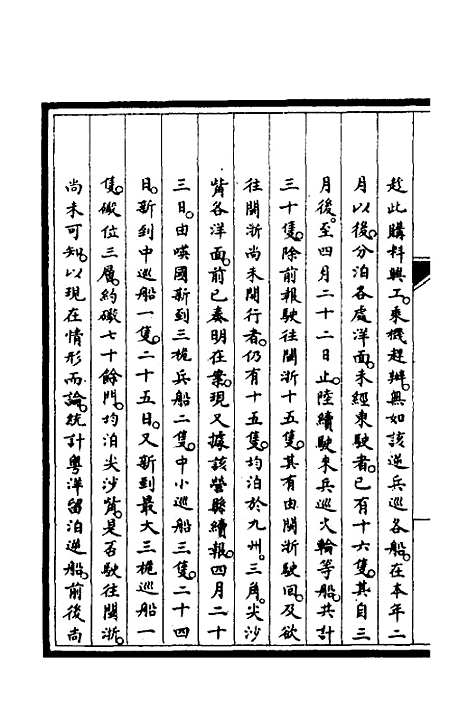 趁此購料興工。乘機趕辦。無如該逆兵巡各船。在本年二
月以後。分泊各處洋面。未經東駛者。已有十六隻。其自三
月後。至四月二十二日止。陸續駛來兵巡火輪等船。共計
三十隻。除前報駛往閩浙十五隻。其有由閩浙駛回。及欲
往閩浙尚未開行者。仍有十五隻。均泊於九州。三角。尖沙
嘴各洋面。前已奏明在案。現又據該營縣續報。四月二十
三日。由𠸄國新到三桅兵船二隻。中小巡船三隻。二十四
日。新到中巡船一隻。二十五日。又新到最大三桅巡船一
隻。礮位三層。約礮七十餘門。均泊尖沙嘴。是否駛往閩浙。
尚未可知。以現在情形而論。統計粵洋留泊逆船。前後尚